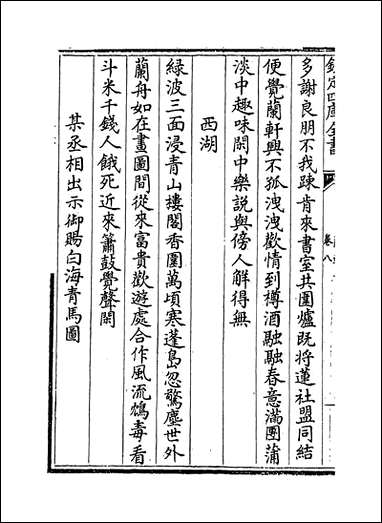 欽定四庫全書
卷八
多謝良朋不我踈肯來書室共圍爐既將蓮社盟同結
便覺蘭軒興不孤洩洩歡情到樽酒融融春意滿團蒲
淡中趣味閑中樂説與傍人解得無
西湖
綠波三面浸青山樓閣香圍萬頃寒蓬島忽驚塵世外
蘭舟如在畫圖間從來富貴歡遊處合作風流鴆毒看
斗米千錢人餓死近來簫鼓覺聲閑
某丞相出示御賜白海青馬圖